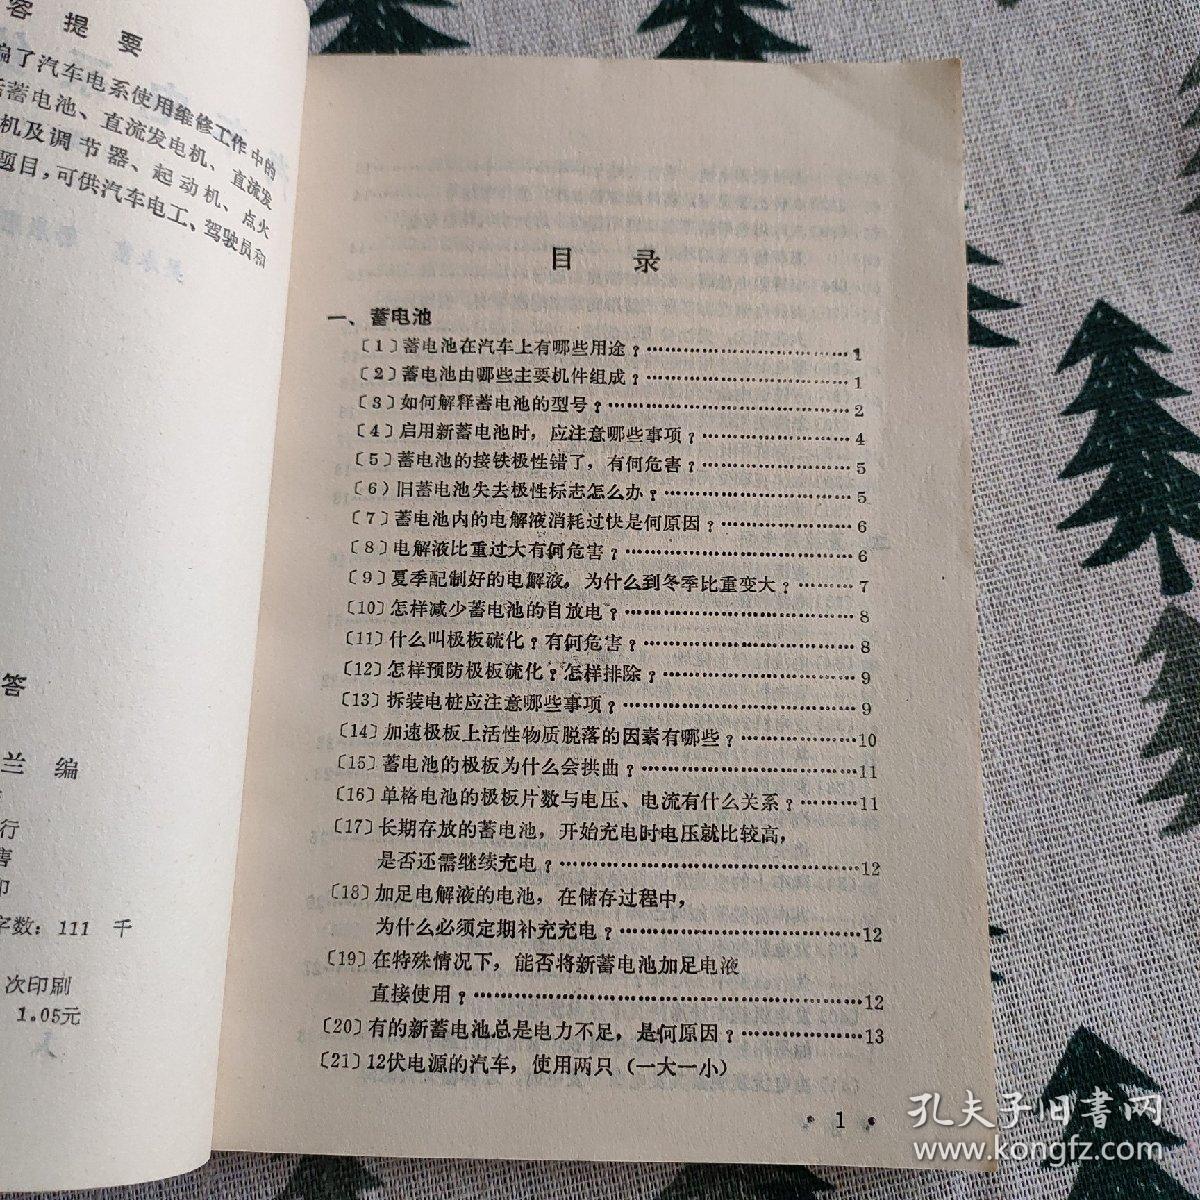 容 提 要
了汽车电系使用维修工作中的
蓄电池、直流发电机、直流发
机及调节器、起动机、点火
题目，可供汽车电工、驾驶员和
答
兰 编
行
印
字数：111 千
次印刷
1.05元
目 录
一、蓄电池
〔1〕蓄电池在汽车上有哪些用途？……………………1
〔2〕蓄电池由哪些主要机件组成？……………………1
〔3〕如何解释蓄电池的型号？……………………2
〔4〕启用新蓄电池时，应注意哪些事项？……………………4
〔5〕蓄电池的接铁极性错了，有何危害？……………………5
〔6〕旧蓄电池失去极性标志怎么办？……………………5
〔7〕蓄电池内的电解液消耗过快是何原因？………………6
〔8〕电解液比重过大有何危害？……………………6
〔9〕夏季配制好的电解液，为什么到冬季比重变大？………7
〔10〕怎样减少蓄电池的自放电？……………………8
〔11〕什么叫极板硫化？有何危害？……………………8
〔12〕怎样预防极板硫化？怎样排除？……………………9
〔13〕拆装电桩应注意哪些事项？……………………9
〔14〕加速极板上活性物质脱落的因素有哪些？……………10
〔15〕蓄电池的极板为什么会拱曲？……………………11
〔16〕单格电池的极板片数与电压、电流有什么关系？………11
〔17〕长期存放的蓄电池，开始充电时电压就比较高，
是否还需继续充电？……………………12
〔18〕加足电解液的电池，在储存过程中，
为什么必须定期补充充电？……………………12
〔19〕在特殊情况下，能否将新蓄电池加足电液
直接使用？……………………12
〔20〕有的新蓄电池总是电力不足，是何原因？……………13
〔21〕12伏电源的汽车，使用两只（一大一小）
• 1 •
孔夫子旧书网
www.kongfz.com